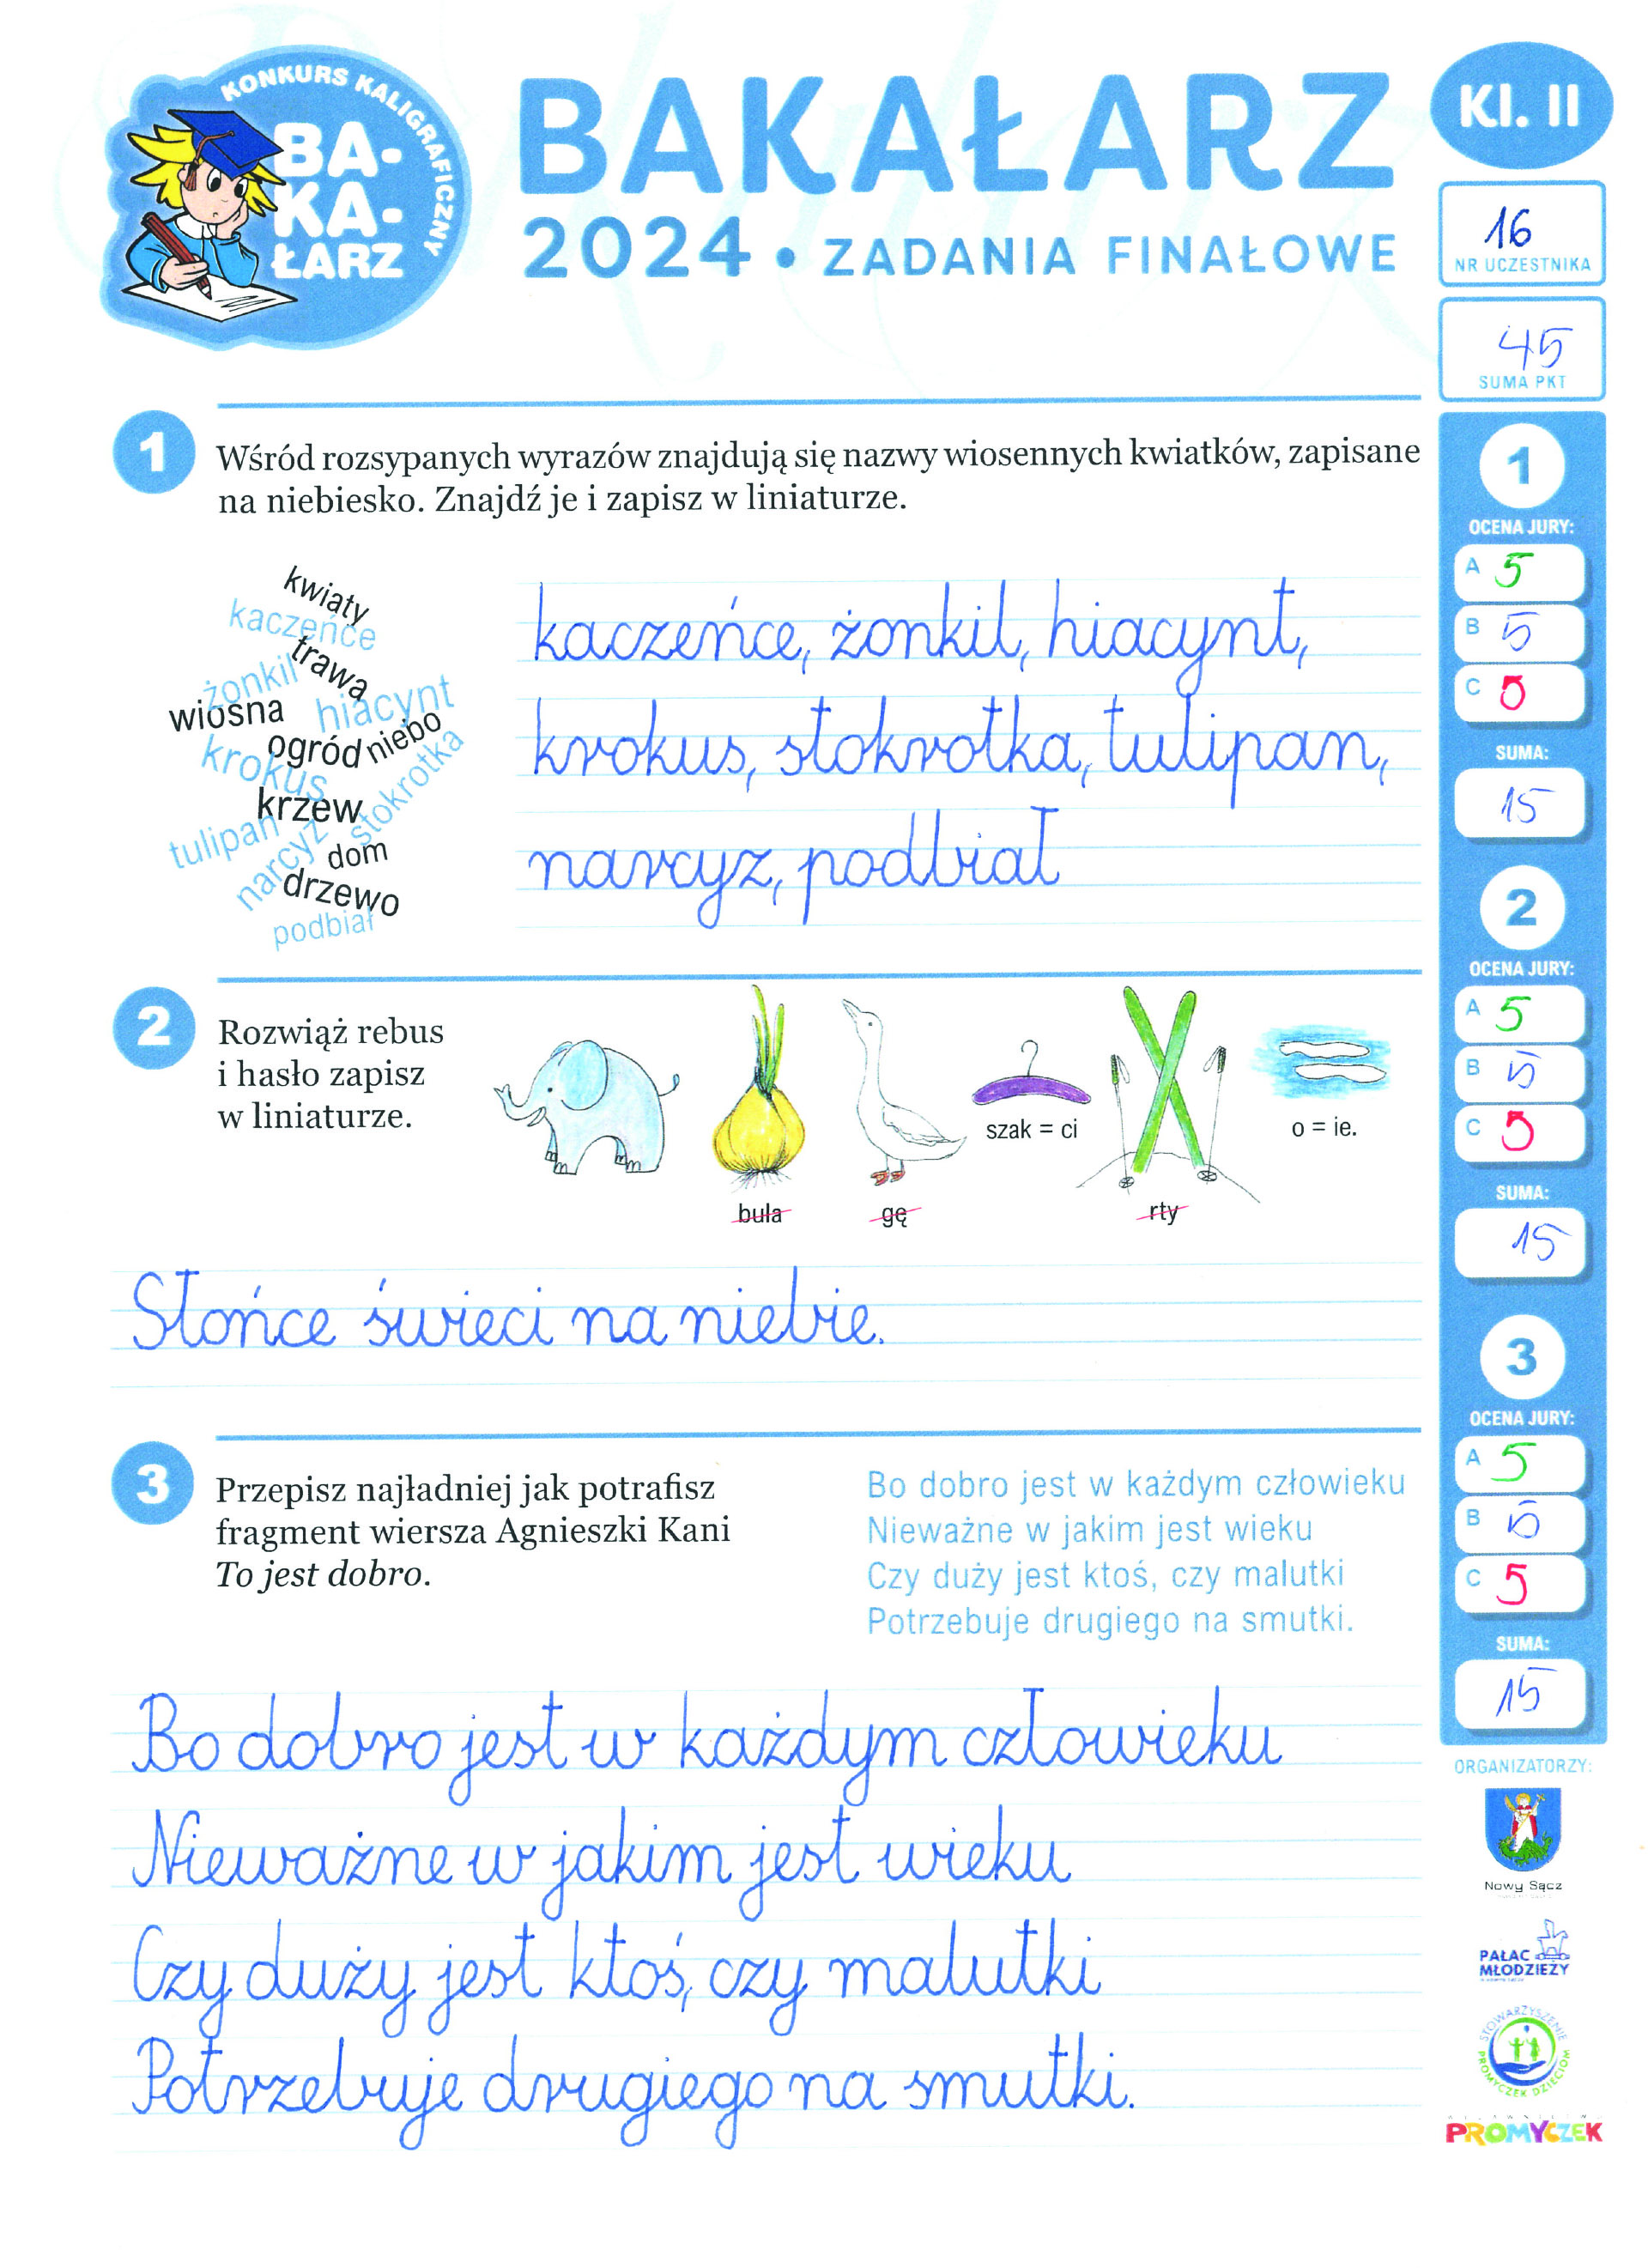 KONKURS KALIGRAFICZNY
BA-
KA-
ŁARZ
BAKAŁARZ
2024 • ZADANIA FINAŁOWE
Kl. II
16
NR UCZESTNIKA
45
SUMA PKT
1
Wśród rozsypanych wyrazów znajdują się nazwy wiosennych kwiatków, zapisane
na niebiesko. Znajdź je i zapisz w liniaturze.
kwiaty
kaczeńce
trawa
żonkil
wiosna
hiacynt
ogród
niebo
krokus
stokrotka
krzew
tulipan
narcyz
dom
drzewo
podbiał
kaczeńce, żonkil, hiacynt,
krokus, stokrotka, tulipan,
narcyz, podbiał
1
OCENA JURY:
A 5
B 5
C 5
SUMA:
15
2
Rozwiąż rebus
i hasło zapisz
w liniaturze.
szak = ci
o = ie.
bula
gę
rty
Słońce świeci na niebie.
2
OCENA JURY:
A 5
B 5
C 5
SUMA:
15
3
Przepisz najładniej jak potrafisz
fragment wiersza Agnieszki Kani
To jest dobro.
Bo dobro jest w każdym człowieku
Nieważne w jakim jest wieku
Czy duży jest ktoś, czy malutki
Potrzebuje drugiego na smutki.
Bo dobro jest w każdym człowieku
Nieważne w jakim jest wieku
Czy duży jest ktoś, czy malutki
Potrzebuje drugiego na smutki.
3
OCENA JURY:
A 5
B 5
C 5
SUMA:
15
ORGANIZATORZY:
Nowy Sącz
PAŁAC
MŁODZIEŻY
STOWARZYSZENIE
PROMYCZEK DZIECIOM
PROMYCZEK